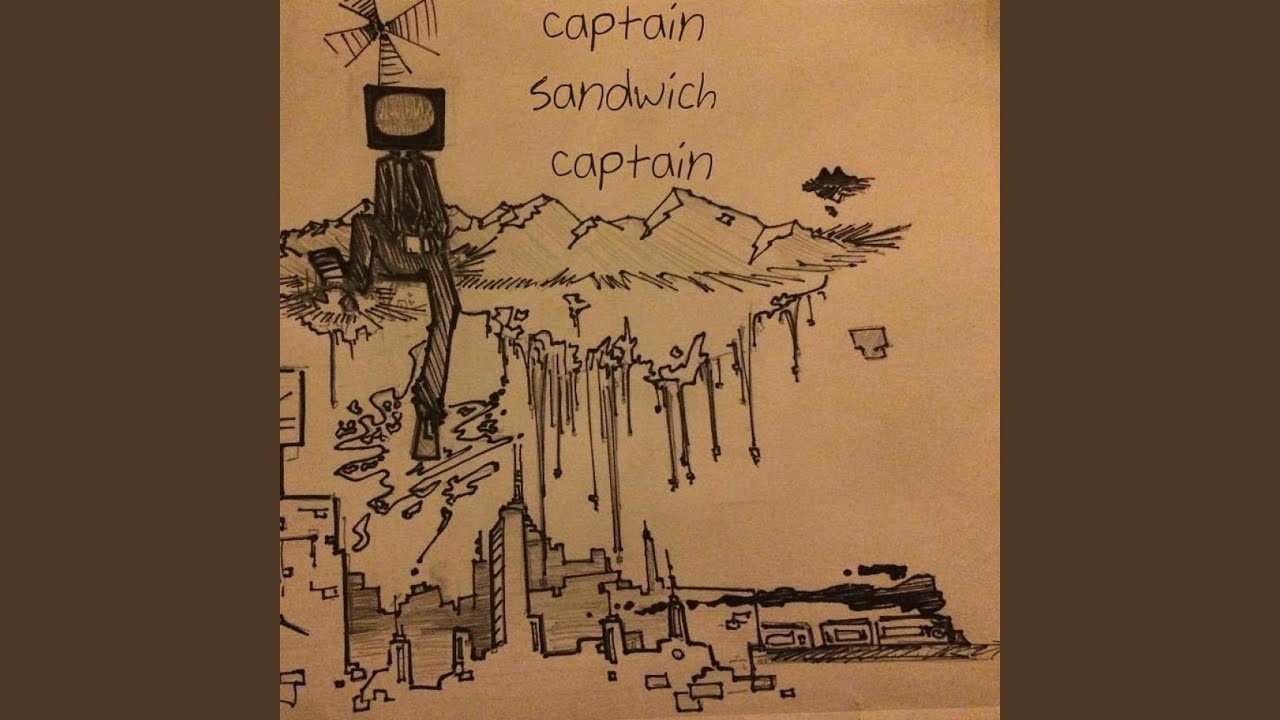 captain
sandwich
captain